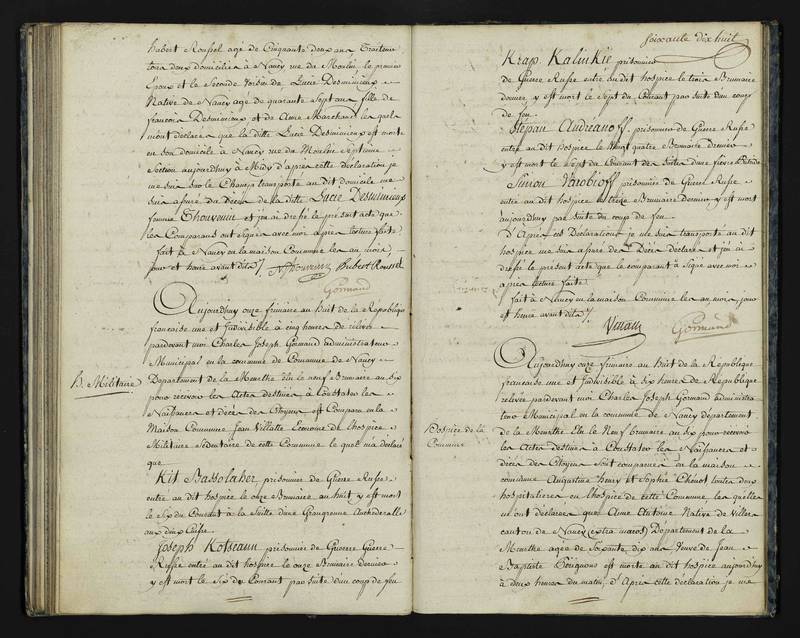 hubert Roussel agé de Cinquante deux ans Traiteur
tous deux domiciliés à Nancy rue du Moulin le premier
Epoux et le Second Voisin de Lucie Desminieux
Native de Nancy agée de quarante Sept ans fille de
francois Desminieux et de Anne Marchand les quels
m'ont déclaré que la ditte Lucie Desminieux est morte
en son domicile à Nancy rue du Moulin Septieme
Section aujourdhuy à Midy d'après cette déclaration je
me suis sur le Champ transporté au dit domicile me
suis assuré du Décès de la ditte Lucie Desminieux
femme Thouvenin et j'en ai dressé le présent acte que
les Comparans ont signés avec moi après lecture faite
fait à Nancy en la maison Commune les an mois
jour et heure avant dits
N. Thouvenin hubert Roussel
Gormand
Aujourdhuy onze frimaire an huit de la République
francaise une et Indivisible à cinq heures de relevée
pardevant moi Charles Joseph Gormand administrateur
Municipal en la commune de Commune de Nancy
H. Militaire
Département de la Meurthe Elu le neuf Brumaire an six
pour recevoir les Actes destinés à Constater les
Naissances et décès des Citoyens est Comparu en la
Maison Commune Jean Villatte Econome de l'hospice
Militaire Sédentaire de cette Commune le quel m'a déclaré
que
Kit Bassolaber, prisonnier de Guerre Russe
entré au dit hospice le onze Brumaire an huit y est mort
le Six du Courant à la Suitte d'une Grangrenne
aux deux Cuisse
Joseph Kotseann prisonnier de Guerre Guerre
Russe entré au dit hospice le onze Brumaire dernier
y est mort le Six du Courant par suite d'un coup de feu
soixante dix huit
Krap Kalinkie prisonnier
de Guerre Russe entré au dit hospice le trois Brumaire
dernier y est mort le Sept du Courant par suite d'un coup
de feu
Stépan Audréanoff, prisonnier de Guerre Russe
entré au dit hospice le Vingt quatre Brumaire dernier
y est mort le Sept du Courant des suites d'une fièvre Putride
Simon Varobioff prisonnier de Guerre Russe
entré au dit hospice le Brumaire Dernier y est mort
aujourdhuy par suite du coup de feu
D'Après ces Déclarations je me suis transporté au dit
hospice me suis assuré des Décès déclarés et j'en ai
dressé le présent acte que le comparant à Signé avec moi
après lecture faite
fait à Nancy en la maison Commune les an, mois, jour
et heure avant dits
Gormand
Aujourdhuy onze frimaire an huit de la République
francaise une et Indivisible à Six heures de République
relevée pardevant moi Charles Joseph Gormand administra-
teur Municipal en la commune de Nancy département
de la Meurthe Elu le Neuf brumaire an six pour recevoir
Hospice de la
Commune
les Actes destinés à Constater les Naissances et
décès des Citoyens Sont comparues en la maison
commune Augustine henry et Sophie Chénot toutes deux
hospitalieres en l'hospice de cette Commune, les quelles
m'ont déclarées que Anne Antoine Native de Villers
canton de Nancy (extra muros) Département de la
Meurthe agée de Soixante dix ans Veuve de Jean
Baptiste est morte au dit hospice aujourdhuy
à deux heures du matin, d'Après cette déclaration je me